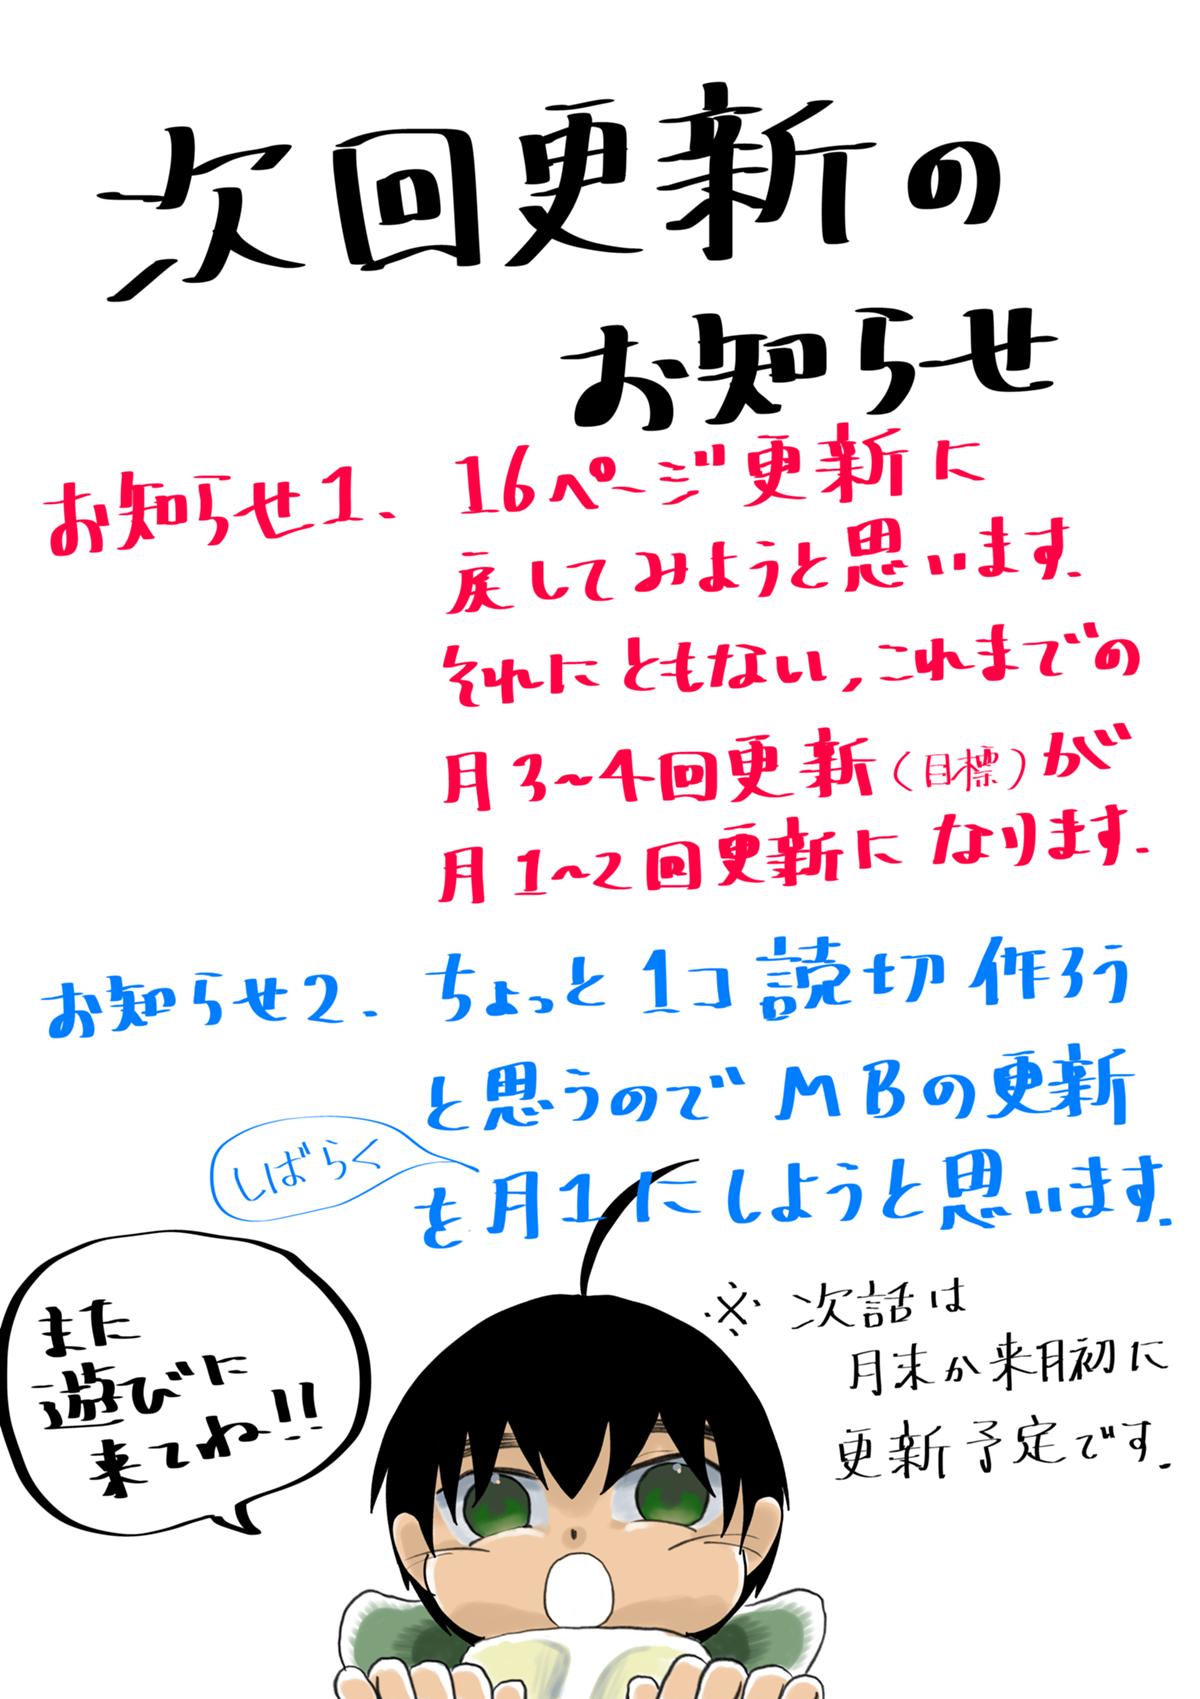 次回更新の
お知らせ
お知らせ1. 16ページ更新に
戻してみようと思います.
それにともない,これまでの
月3~4回更新(目標)が
月1~2回更新になります.
お知らせ2. ちょっと1コ読切作ろう
と思うのでMBの更新
しばらく
を月1にしようと思います.
※次話は
月末か来月初に
更新予定です.
また
遊びに
来てね!!